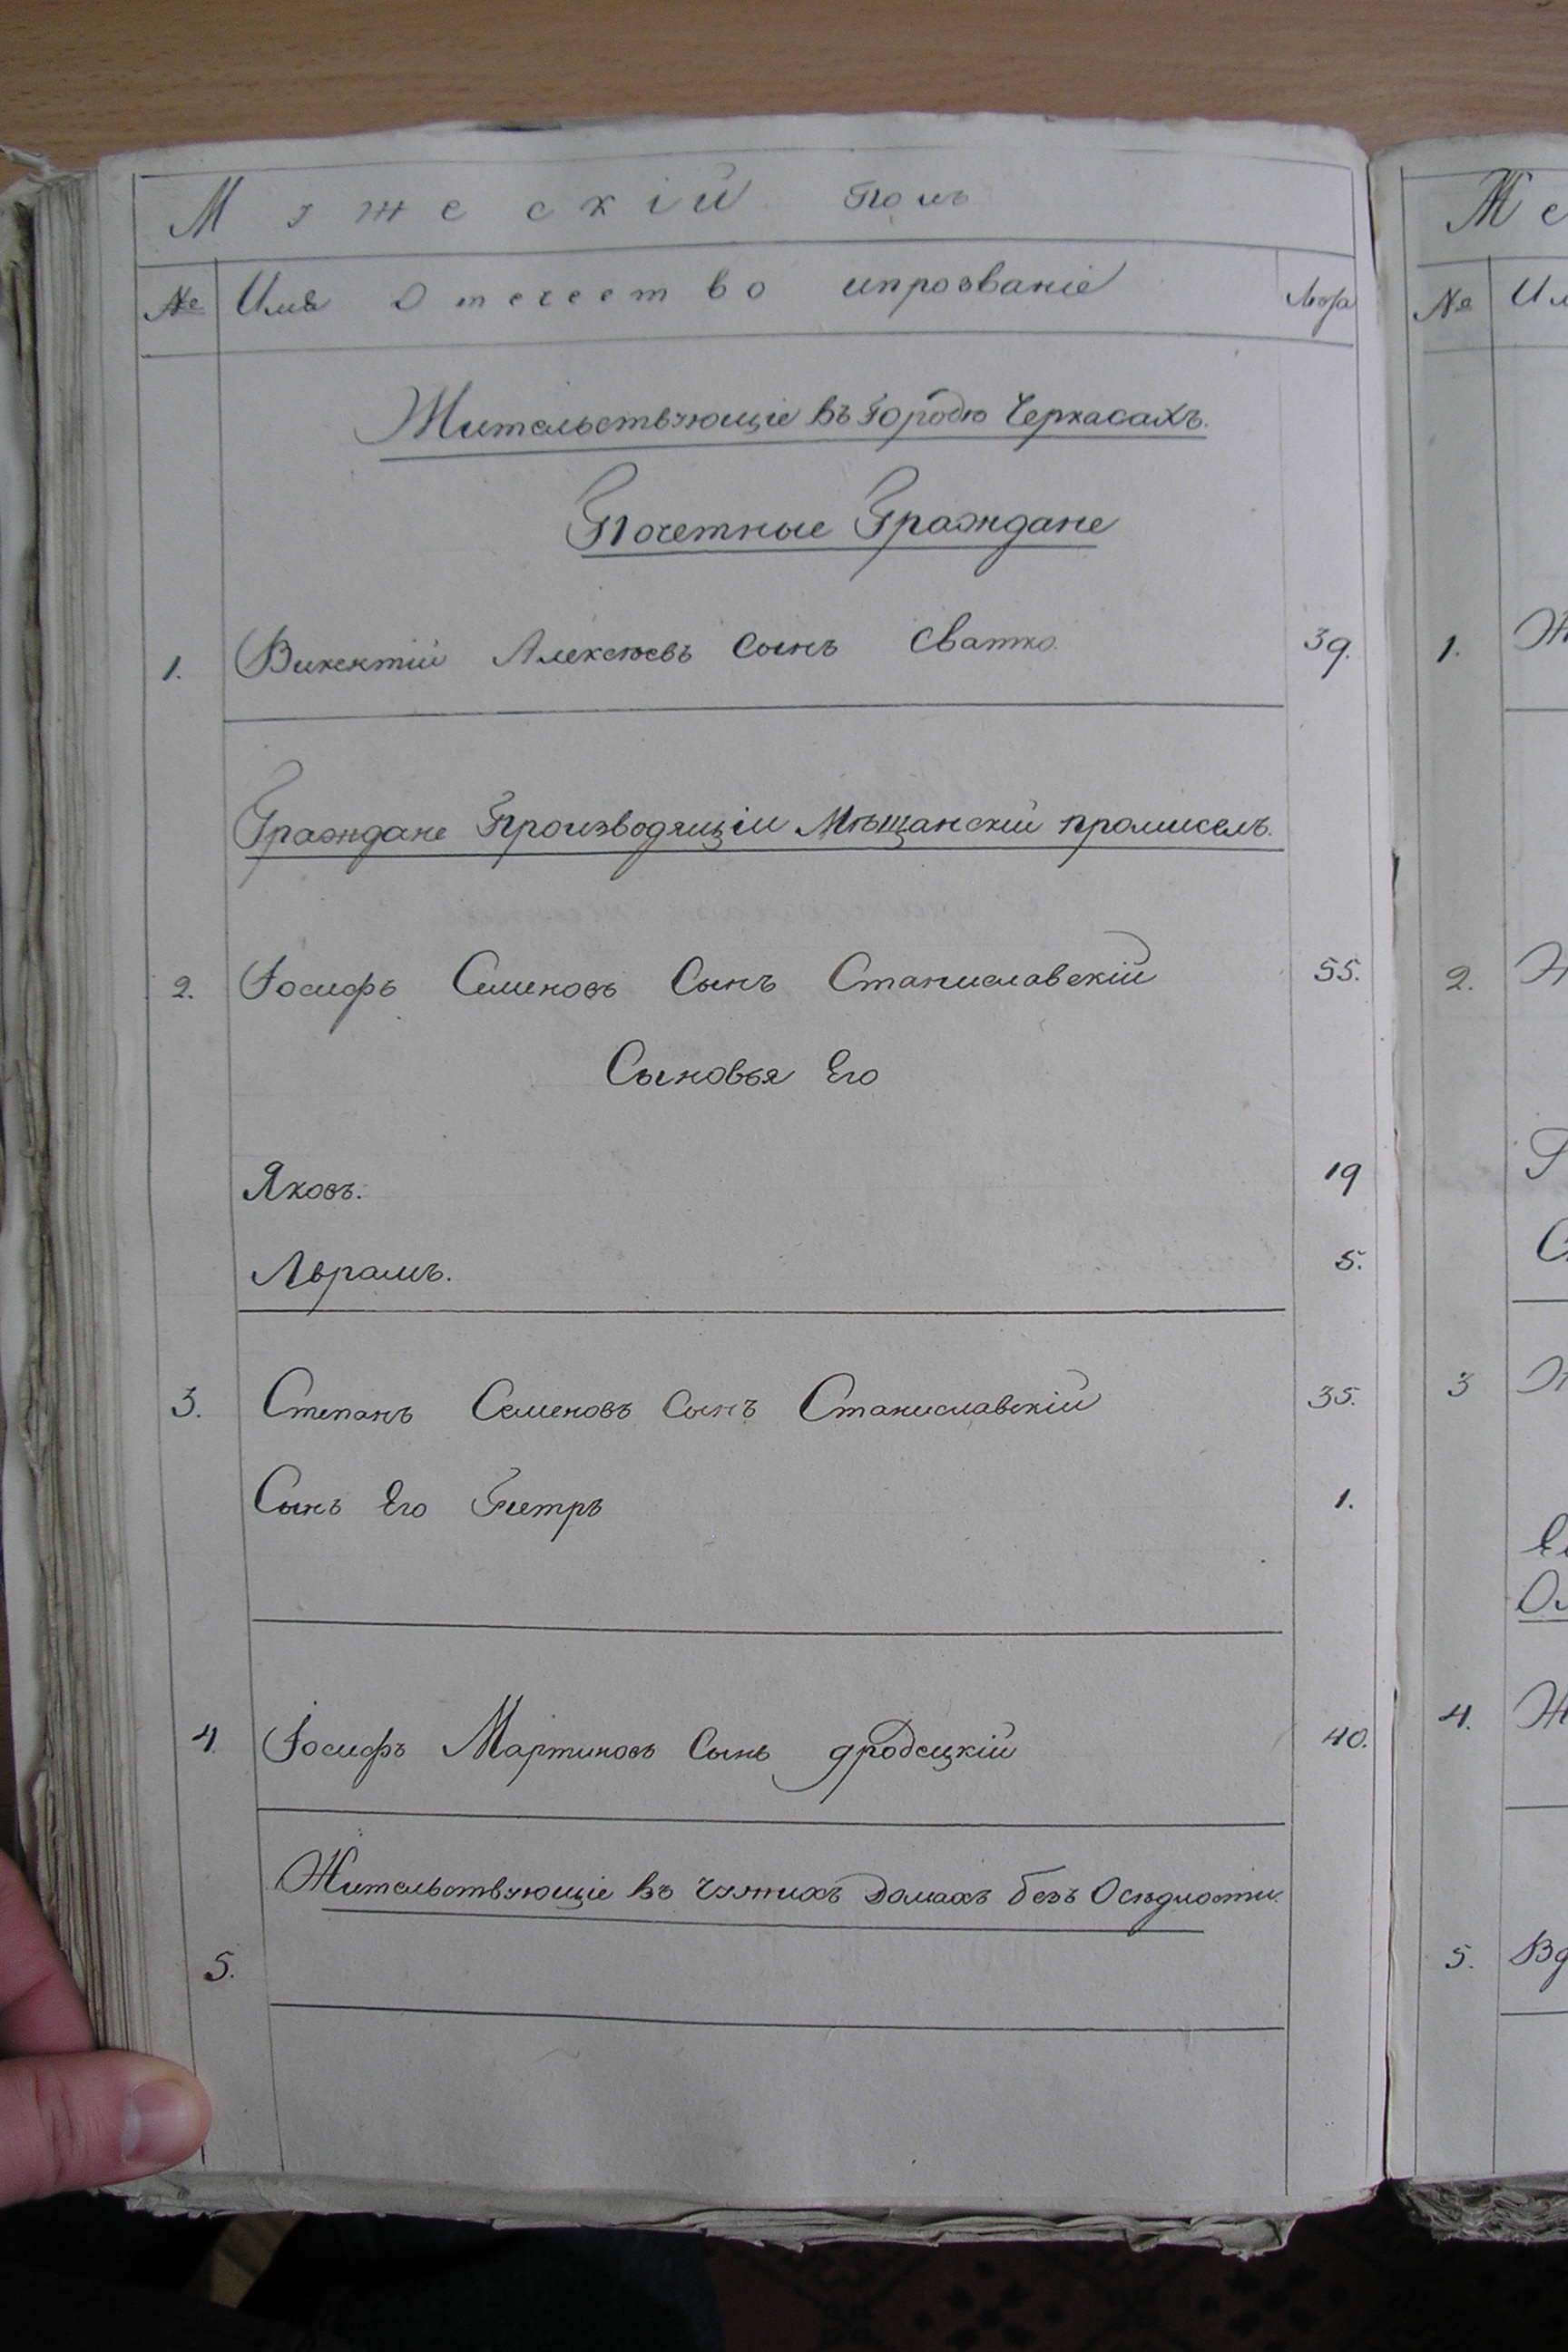 Мужескій Полъ
№ Имя Отечество ипрозваніе Лѣта
Жительствующіе въ Городѣ Черкасахъ.
Почетные Граждане
1. Викентій Алексѣевъ Сынъ Сватко. 39.
Граждане Производящіи Мѣщанскій промиселъ.
2. Іосифъ Семеновъ Сынъ Станиславскій 55.
Сыновья Его
Яковъ. 19
Аврамъ. 5.
3. Степанъ Семеновъ Сынъ Станиславскій 35.
Сынъ Его Петръ 1.
4. Іосифъ Мартиновъ Сынъ 40.
Жительствующіе въ Чужихъ Домахъ безъ Осѣдлости.
5.
№
1.
2.
3
4.
5.